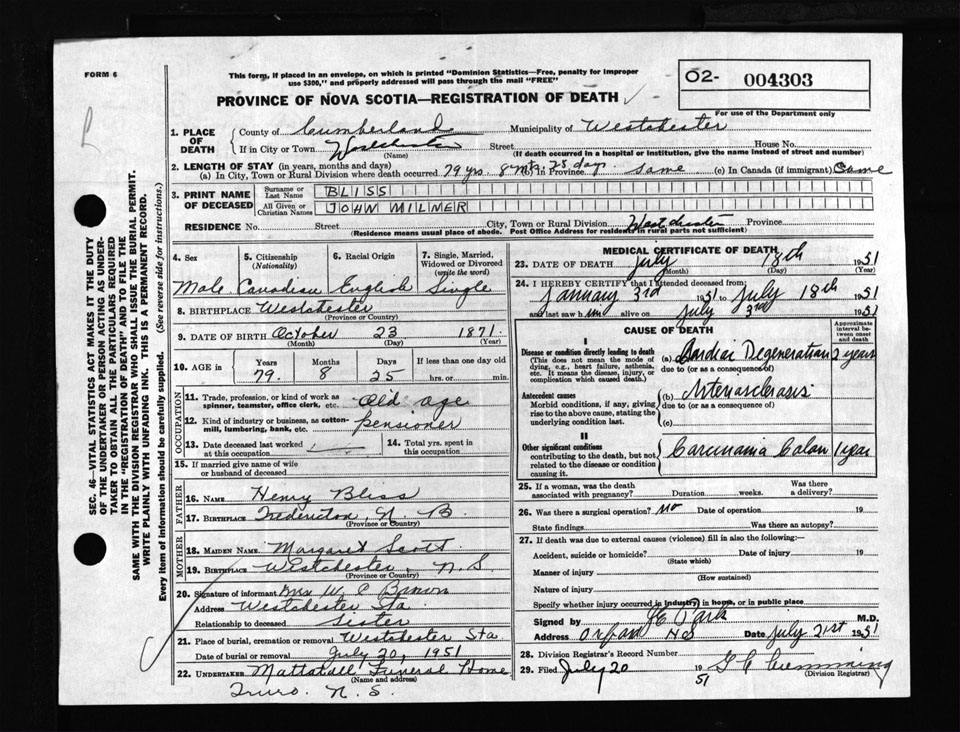 FORM 6
This form, if placed in an envelope, on which is printed "Dominion Statistics—Free, penalty for improper
use $300," and properly addressed will pass through the mail "FREE"
O2- 004303
For use of the Department only
PROVINCE OF NOVA SCOTIA—REGISTRATION OF DEATH
1. PLACE OF DEATH { County of Cumberland Municipality of Westchester
If in City or Town Westchester (Name) Street House No.
(If death occurred in a hospital or institution, give the name instead of street and number)
2. LENGTH OF STAY (in years, months and days)
(a) In City, Town or Rural Division where death occurred 79 yrs. 8 mts. 25 day. (b) In Province Same (c) In Canada (if immigrant) Same
3. PRINT NAME OF DECEASED { Surname or Last Name BLISS
All Given or Christian Names JOHN MILNER
RESIDENCE No. Street City, Town or Rural Division Westchester Province
(Residence means usual place of abode. Post Office Address for residents in rural parts not sufficient)
4. Sex Male
5. Citizenship (Nationality) Canadian
6. Racial Origin English
7. Single, Married, Widowed or Divorced (write the word) Single
8. BIRTHPLACE Westchester
(Province or Country)
9. DATE OF BIRTH October 23 1871
(Month) (Day) (Year)
10. AGE in { Years 79. Months 8 Days 25 If less than one day old hrs. or min.
OCCUPATION
11. Trade, profession, or kind of work as spinner, teamster, office clerk, etc. Old age
12. Kind of industry or business, as cotton-mill, lumbering, bank, etc. pensioner
13. Date deceased last worked at this occupation
14. Total yrs. spent in this occupation
15. If married give name of wife or husband of deceased
FATHER
16. NAME Henry Bliss
17. BIRTHPLACE Fredericton, N. B.
(Province or Country)
MOTHER
18. MAIDEN NAME Margaret Scott
19. BIRTHPLACE Westchester, N. S.
(Province or Country)
20. Signature of informant Mrs W C
Address Westchester Sta
Relationship to deceased Sister
21. Place of burial, cremation or removal Westchester Sta.
Date of burial or removal July 20, 1951
22. UNDERTAKER Mattatall Funeral Home
(Name and address)
Truro. N. S.
MEDICAL CERTIFICATE OF DEATH
23. DATE OF DEATH July 18th 1951
(Month) (Day) (Year)
24. I HEREBY CERTIFY that I attended deceased from:
January 3rd 1951 to July 18th 1951
and last saw him alive on July 3rd 1951
CAUSE OF DEATH
Approximate interval between onset and death
I
Disease or condition directly leading to death
(This does not mean the mode of dying, e.g., heart failure, asthenia, etc. It means the disease, injury, or complication which caused death.)
(a) Cardiac Degeneration 2 years
due to (or as a consequence of)
Antecedent causes
Morbid conditions, if any, giving rise to the above cause, stating the underlying condition last
(b) Arteriosclerosis
due to (or as a consequence of)
(c)
II
Other significant conditions
contributing to the death, but not related to the disease or condition causing it.
Carcinoma Colon 1 year
25. If a woman, was the death associated with pregnancy? Duration weeks. Was there a delivery?
26. Was there a surgical operation? no Date of operation 19
State findings Was there an autopsy?
27. If death was due to external causes (violence) fill in also the following:—
Accident, suicide or homicide? Date of injury 19
(State which)
Manner of injury
(How sustained)
Nature of injury
Specify whether injury occurred in industry, in home, or in public place
Signed by M.D.
Address Oxford NS Date July 21st 1951
28. Division Registrar's Record Number
29. Filed July 20 1951 G C Cumming
(Division Registrar)
SEC. 46—VITAL STATISTICS ACT MAKES IT THE DUTY
OF THE UNDERTAKER OR PERSON ACTING AS UNDER-
TAKER TO OBTAIN ALL THE PARTICULARS REQUIRED
IN THE "REGISTRATION OF DEATH" AND TO FILE THE
SAME WITH THE DIVISION REGISTRAR WHO SHALL ISSUE THE BURIAL PERMIT.
WRITE PLAINLY WITH UNFADING INK. THIS IS A PERMANENT RECORD.
Every item of information should be carefully supplied. (See reverse side for instructions.)